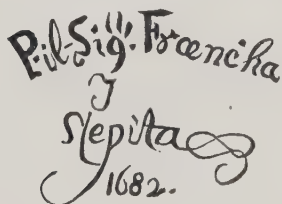 P.il-Sig. Francha
J
Slepita
1682.